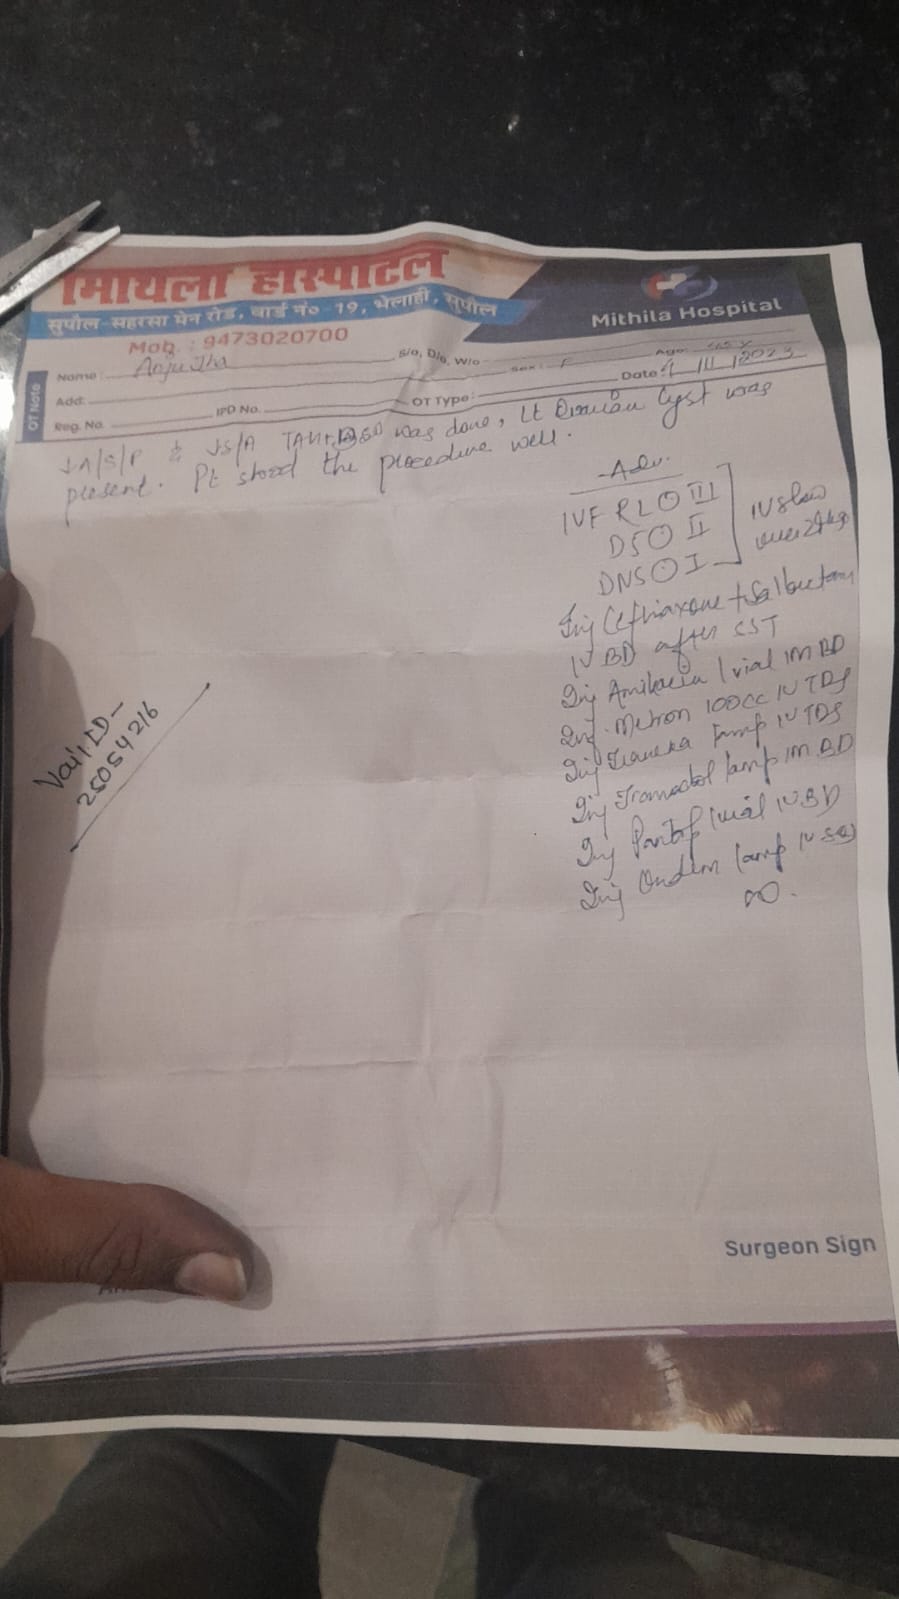 मिथिला हास्पीटल
सुपौल-सहरसा मेन रोड, वार्ड नं० - 19, भेलाही, सुपौल
Mob. : 9473020700
Mithila Hospital
OT Note
Name: Anju Jha S/o, D/o, W/o Sex: F Age:
Add: OT Type: Date: 1/11/2023
Reg. No. IPD No.
↓A/S/P & ↓S/A TAH + was done, Lt Ovarian Cyst was
present. Pt stood the procedure well.
Adv.
IVF RL ⊙ III
D5 ⊙ II
DNS ⊙ I
IV slow
over 24
Inj Ceftriaxone +
IV BD after SST
Inj Amikacin 1 vial IM BD
Inj. Metron 100cc IV TDS
Inj 1amp IV TDS
Inj Tramadol 1amp IM BD
Inj Pantop 1vial IV BD
Inj Ondem 1amp IV
Nail ID -
25054216
Surgeon Sign